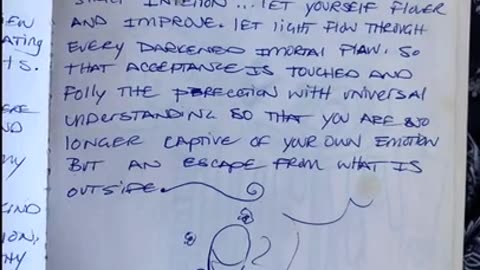 ... LET YOURSELF FLOWER
AND IMPROVE. LET LIGHT FLOW THROUGH
EVERY DARKENED IMORTAL FLAW. SO
THAT ACCEPTANCE IS TOUCHED AND
FOLLY THE PERECTION WITH UNIVERSAL
UNDERSTANDING SO THAT YOU ARE NO
LONGER CAPTIVE OF YOUR OWN EMOTION
BUT AN ESCAPE FROM WHAT IS
OUTSIDE.